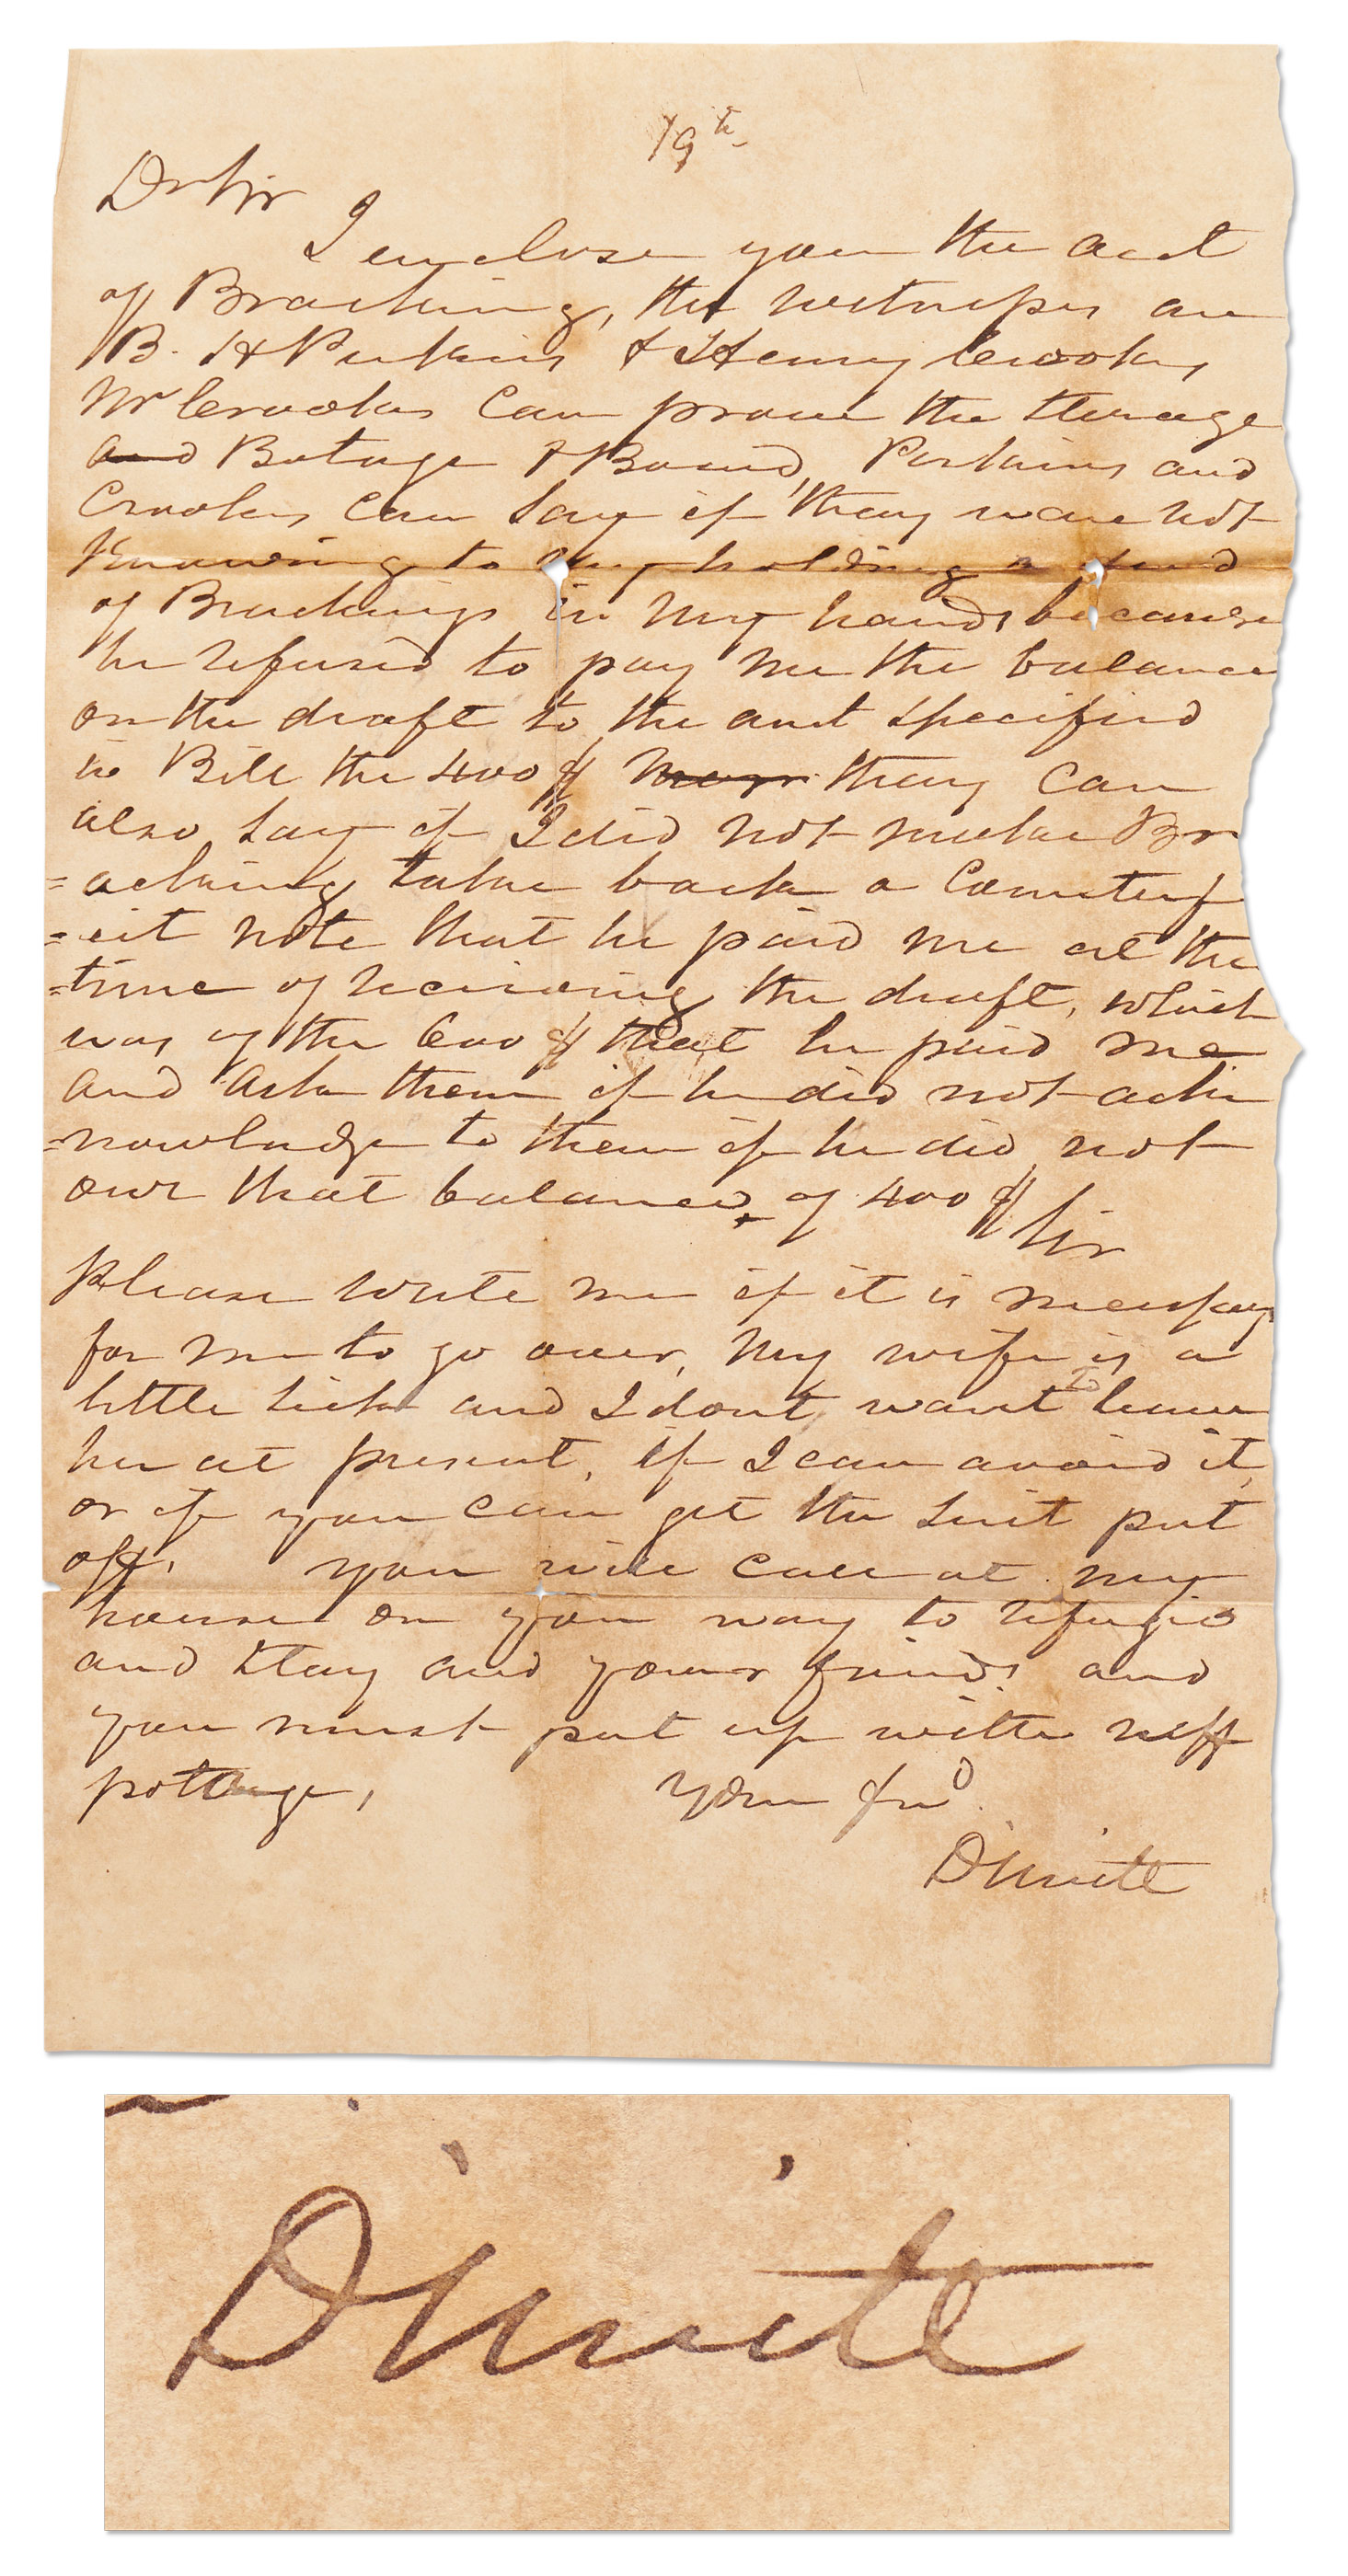 19th
Dr Sir
I enclose you the act
of Bracking, the witnesses are
B. H Perkins & Henry Crooks,
Mr Crooks can prove the storage
and Botage & Board, Perkins and
Crooks can say if thay ware not
Knowing to my holding a
of Brackings in my hands because
he refused to pay me the balance
on the draft to the amt specified
in Bill the 400 $ thay can
also say if I did not make Br
=acking take back a Counterf
=eit note that he paid me at the
=time of receiving the draft, which
was of the 600 $ that he paid me
and ask them if he did not ack
=nowledge to them if he did not
owe that balance of 400 $ Sir
Please write me if it is necessary
for me to go over, My wife is a
little sick and I dont want to leave
her at present, if I can avoid it,
or if you can get the suit put
off, you will call at my
house on your way to refugio
and stay and your friends and
you must put up with ruff
pottage,
Your frd.
Dimitt
Dimitt